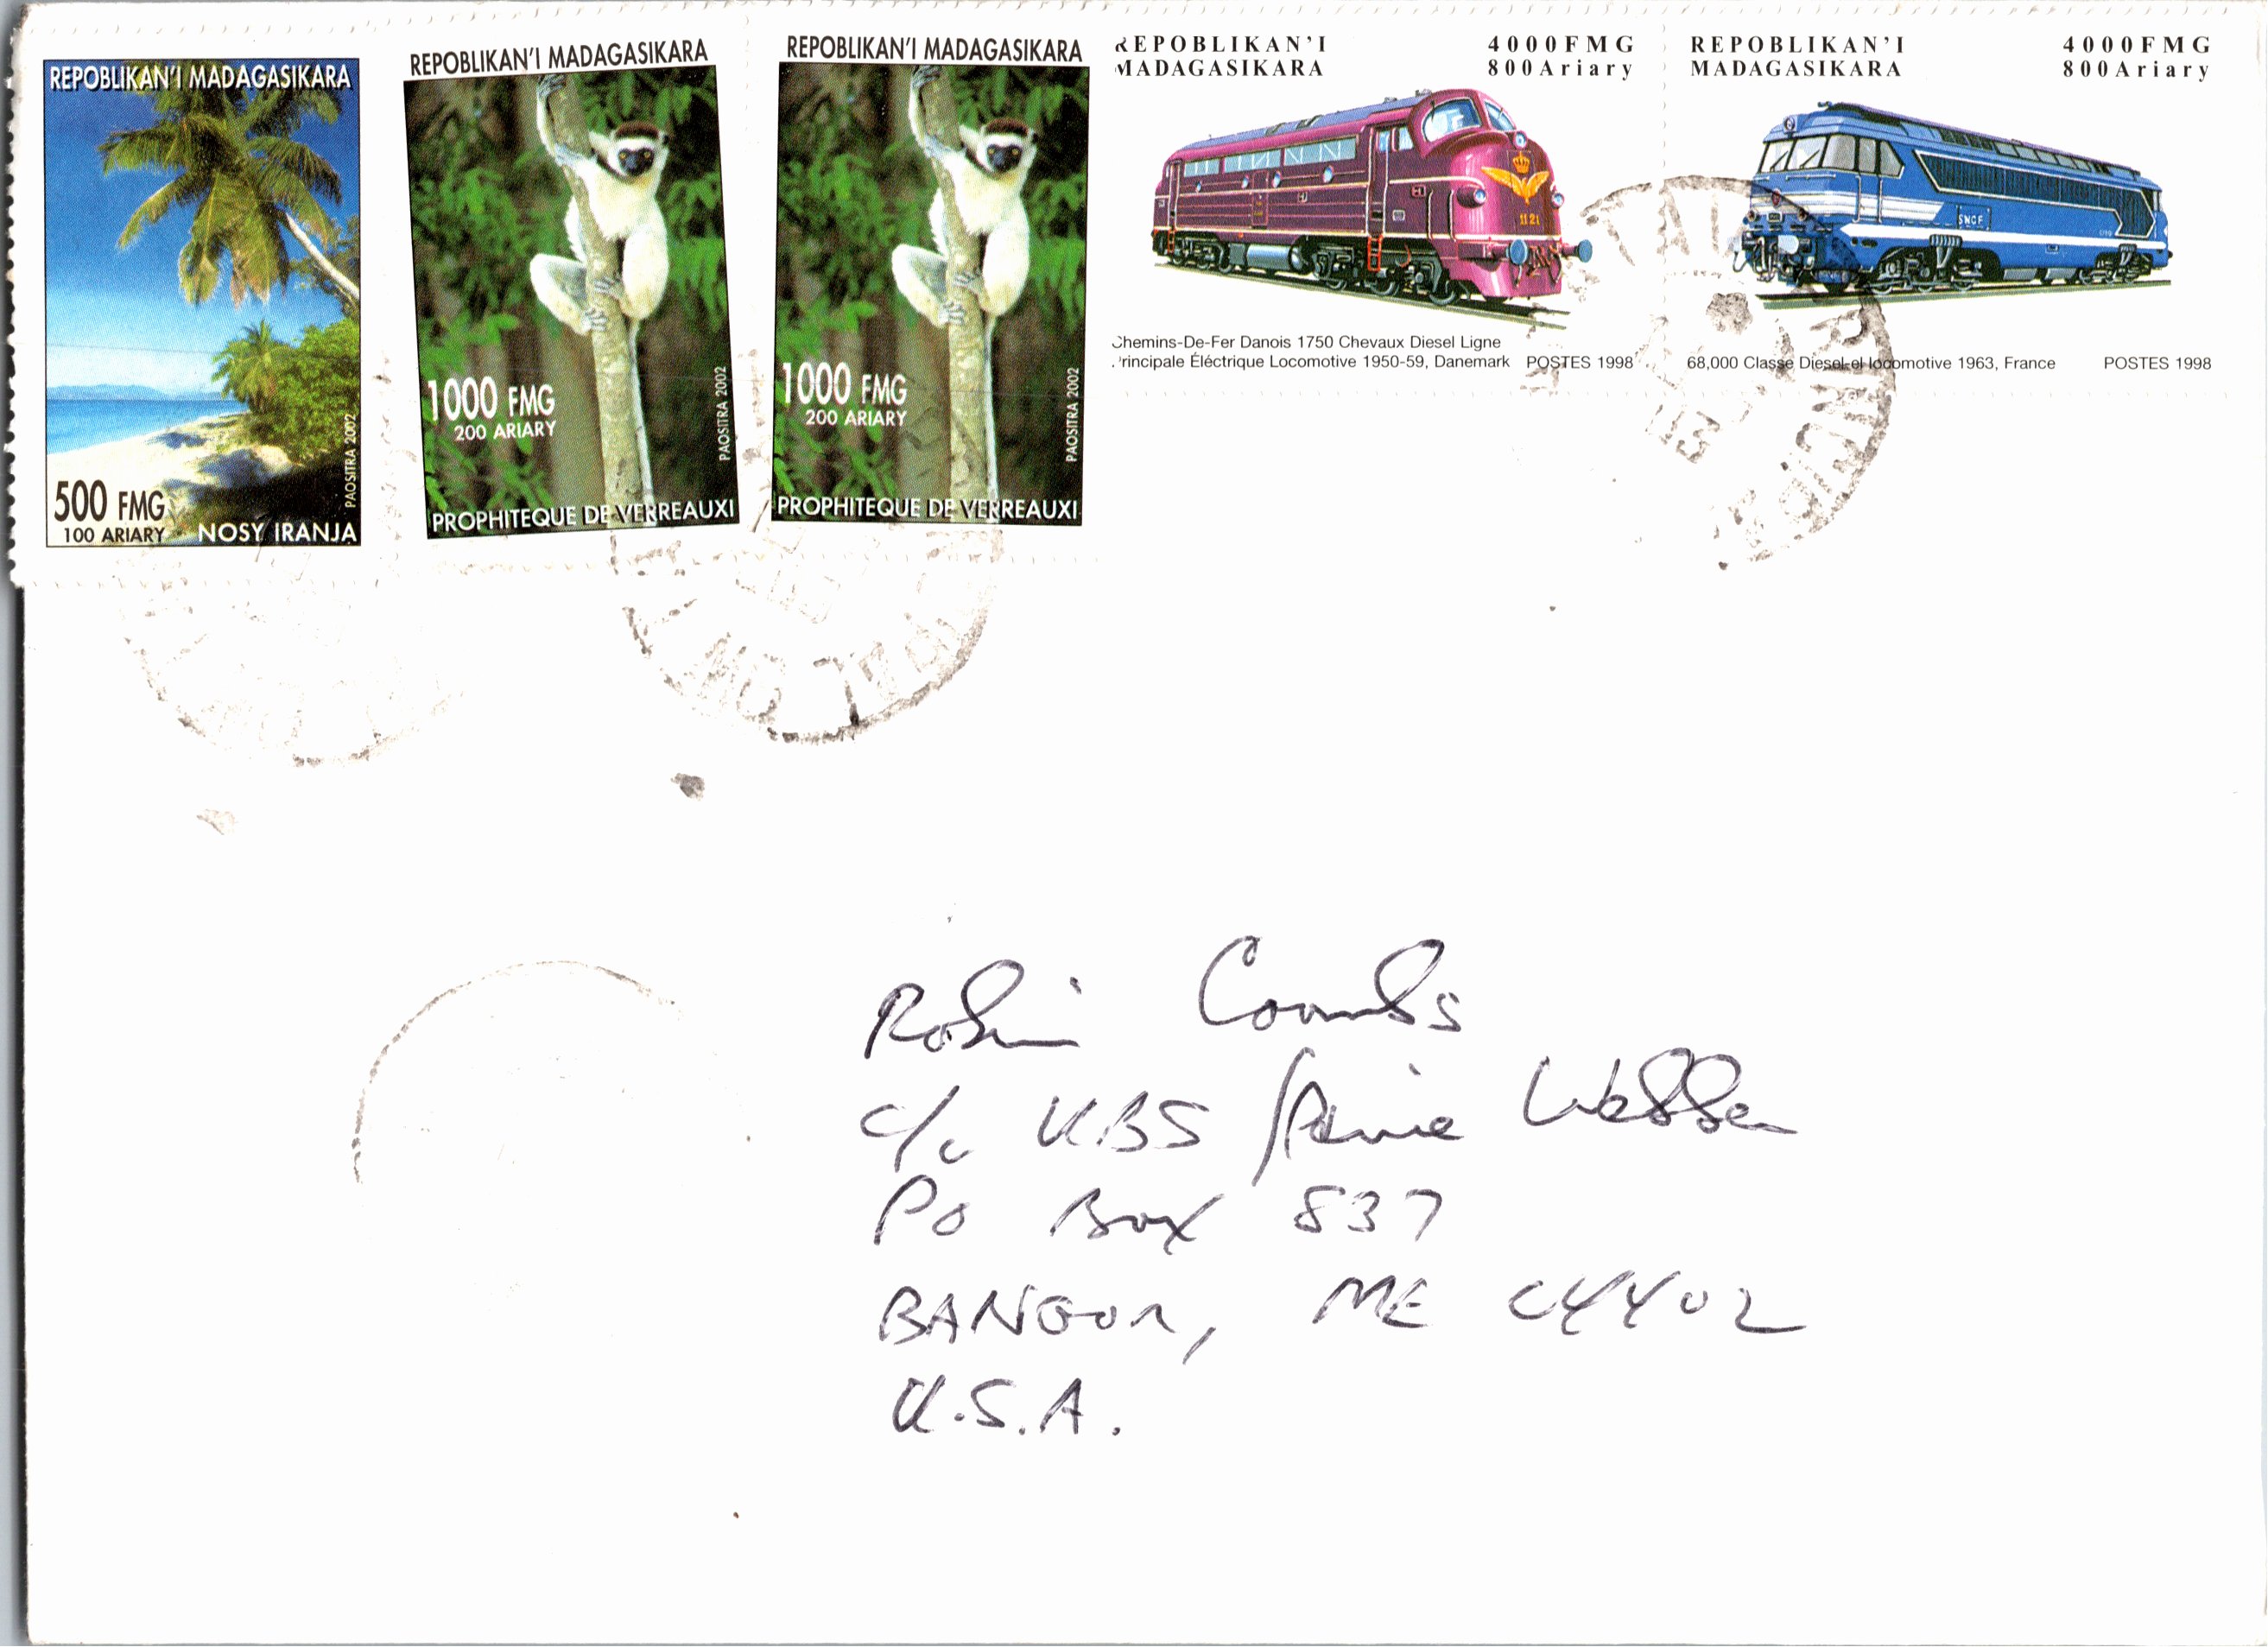 REPOBLIKAN'I MADAGASIKARA
500 FMG
100 ARIARY
NOSY IRANJA
PAOSITRA 2002
REPOBLIKAN'I MADAGASIKARA
1000 FMG
200 ARIARY
PAOSITRA 2002
PROPHITEQUE DE VERREAUXI
REPOBLIKAN'I MADAGASIKARA
1000 FMG
200 ARIARY
PAOSITRA 2002
PROPHITEQUE DE VERREAUXI
REPOBLIKAN'I
MADAGASIKARA
4000FMG
800Ariary
1121
Chemins-De-Fer Danois 1750 Chevaux Diesel Ligne
Principale Éléctrique Locomotive 1950-59, Danemark POSTES 1998
REPOBLIKAN'I
MADAGASIKARA
4000FMG
800Ariary
SNCF
68,000 Classe Diesel-el locomotive 1963, France POSTES 1998
Robin Coombs
c/o UBS / Webber
PO Box 837
BANGOR, ME 04402
U.S.A.